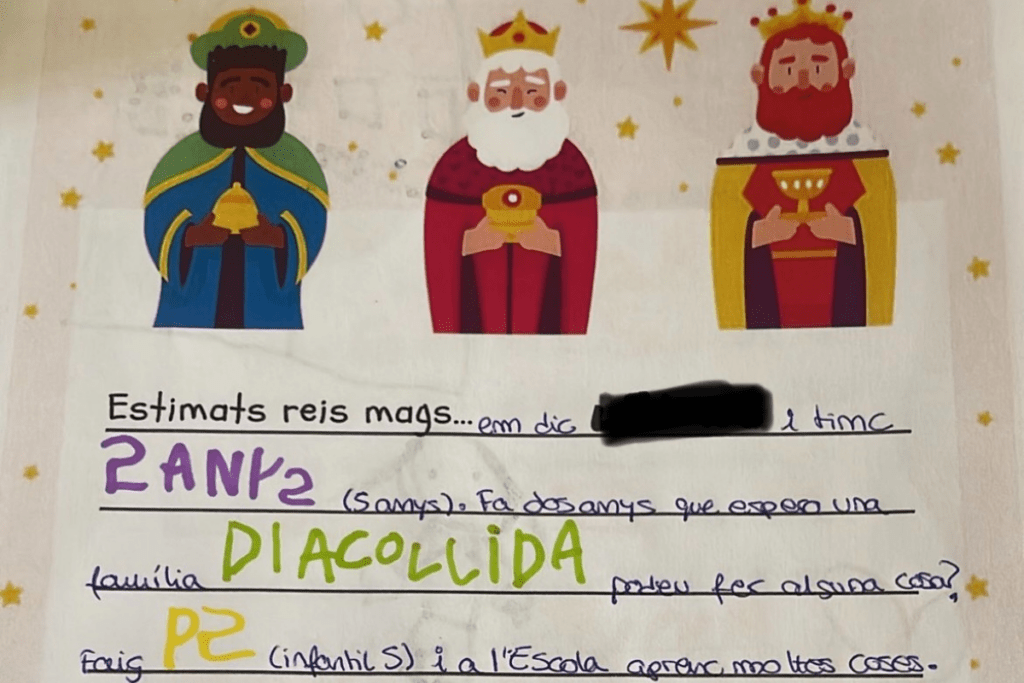 Estimats reis mags... em dic i tinc
2 ANYS (5 anys). Fa dos anys que espero una
família DIACOLLIDA podeu fer alguna cosa?
Faig P2 (infantil 5) i a l'Escola aprenc moltes coses.